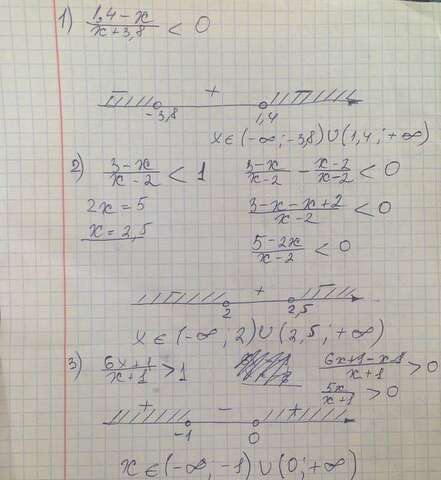 1) (1,4 - x)/(x + 3,8) < 0
- + -
-3,8 1,4
x ∈ (-∞; -3,8) ∪ (1,4; +∞)
2) (3 - x)/(x - 2) < 1 (3 - x)/(x - 2) - (x - 2)/(x - 2) < 0
2x = 5 (3 - x - x + 2)/(x - 2) < 0
x = 2,5 (5 - 2x)/(x - 2) < 0
- + -
2 2,5
x ∈ (-∞; 2) ∪ (2,5; +∞)
3) (6x + 1)/(x + 1) > 1 (6x + 1 - x - 1)/(x + 1) > 0
5x/(x + 1) > 0
+ - +
-1 0
x ∈ (-∞, -1) ∪ (0; +∞)